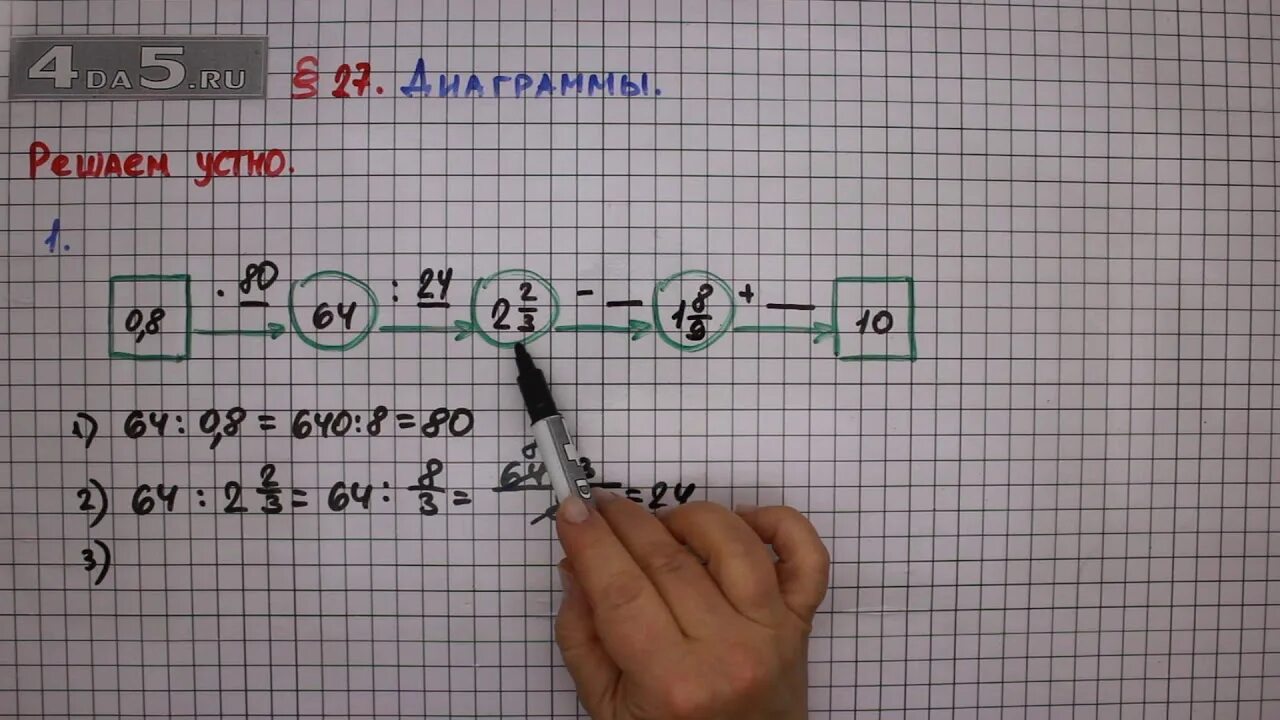 4DA5.RU
§ 27. Диаграммы.
Решаем устно.
1.
0,8 · 80 64 : 24 2 2/3 - __ 1 8/9 + __ 10
1) 64 : 0,8 = 640 : 8 = 80
2) 64 : 2 2/3 = 64 : 8/3 = 64 3 = 24
3)